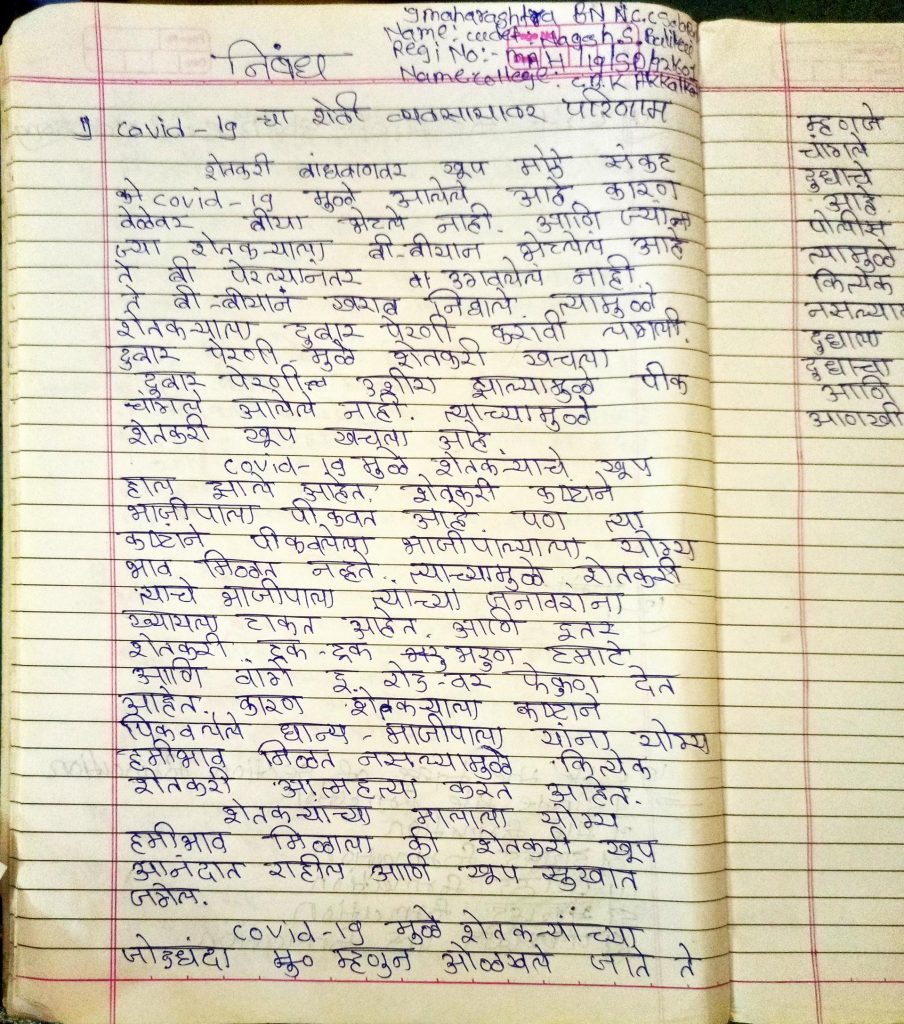 9 maharashtra BN N.C.C
Name: cadet: Nagesh.S.
Regi No:- MH 19/SD/
Name college. C.B.K Akkalkot
निबंध
1) Covid-19 चा शेती व्यवसायावर परिणाम
शेतकरी बांधवानवर खूप मोठे संकट
की covid-19 मुळे आलेले आहे कारण
वेळेवर बीया भेटले नाही. आणि ज्यांना
ज्या शेतकऱ्याला बी-बीयान भेटलेल आहे
ते बी पेरल्यानंतर बी उगवलेल नाही.
ते बी-बीयानं खराब निघाले. त्यामुळे
शेतकऱ्याला दुबार पेरणी करावी लागली.
दुबार पेरणी मुळे शेतकरी खचला
दुबार पेरणीला उशीरा झाल्यामुळे पीक
चांगले आलेले नाही. त्याच्यामुळे
शेतकरी खूप खचला आहे.
covid-19 मुळे शेतकऱ्याचे खूप
हाल झाले आहेत. शेतकरी काष्टाने
भाजीपाला पीकवत आहे पण त्या
काष्टाने पीकवलेला भाजीपाल्याला योग्य
भाव मिळत नव्हते. त्याच्यामुळे शेतकरी
त्याचे भाजीपाला त्याच्या जनावराना
ख्यायला टाकत आहेत. आणि इतर
शेतकरी ट्रक-ट्रक भरुण टमाटे
आणि वांगे इ. रोड-वर फेकुण देत
आहेत. कारण शेतकऱ्याला काष्टाने
पिकवलेले धान्य-भाजीपाला यांना योग्य
हमीभाव मिळत नसल्यामुळे कित्येक
शेतकरी आत्महत्या करत आहेत.
शेतकऱ्यांच्या मालाला योग्य
हमीभाव मिळाला की शेतकरी खूप
आनंदात राहील आणि खूप सुखात
जगेल.
covid-19 मुळे शेतकऱ्यांच्या
जोडधंदा म्हणुन ओळखले जाते ते
म्हणजे
चांगले
दुधाचे
आहे.
पोलीस
त्यामुळे
कित्येक
नसल्या
दुधाला
दुधाचा
आणि
आणखी